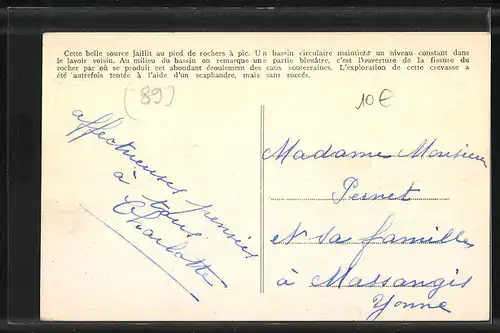 Cette belle source jaillit au pied de rochers à pic. Un bassin circulaire maintient un niveau constant dans
le lavoir voisin. Au milieu du bassin on remarque une partie bleuâtre, c'est l'ouverture de la fissure du
rocher par où se produit cet abondant écoulement des eaux souterraines. L'exploration de cette crevasse a
été autrefois tentée à l'aide d'un scaphandre, mais sans succés.
(89)
10€
affectueuses pensées
à tous
Charlotte
Madame Monsieur
Pernet
et sa famille
à Massangis
Yonne